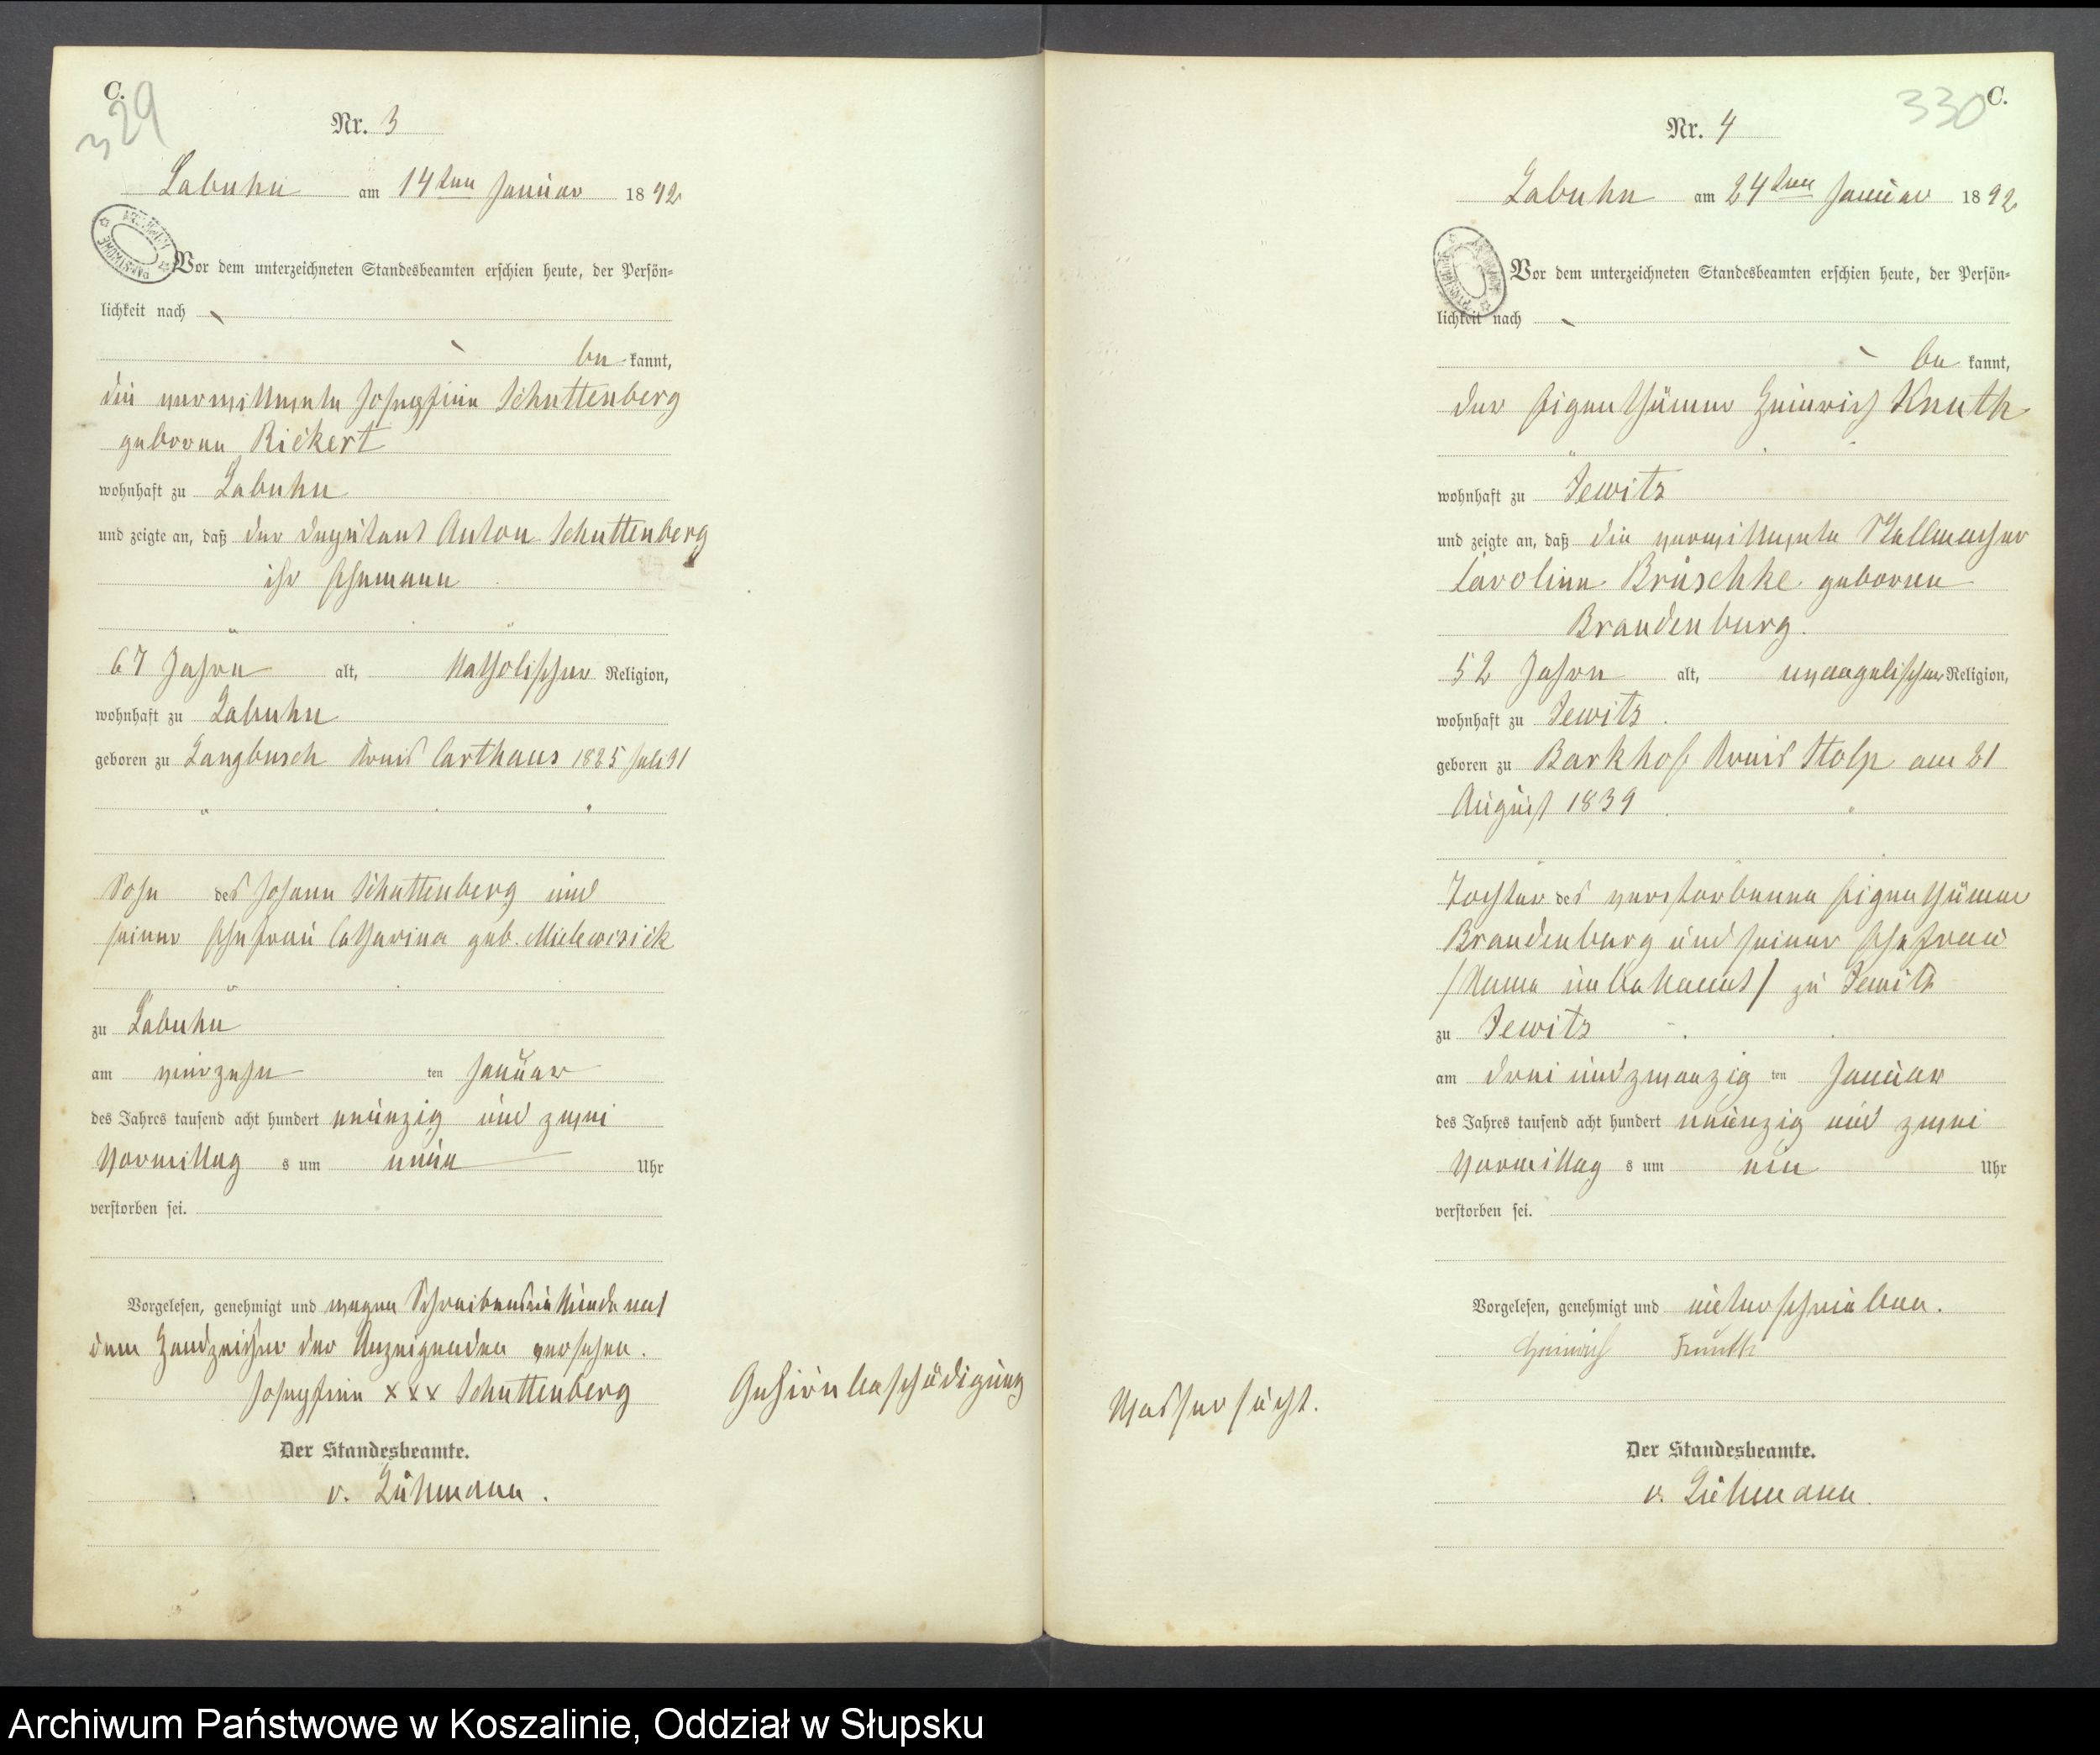 C.
329
Nr. 3
Labuhn am 14ten Januar 1892
Vor dem unterzeichneten Standesbeamten erschien heute, der Persön=
lichkeit nach
be kannt,
die verwittwete Josephine Schuttenberg
geborene Rickert
wohnhaft zu Labuhn
und zeigte an, daß der Deputant Anton Schuttenberg
ihr Ehemann
67 Jahre alt, katholischer Religion,
wohnhaft zu Labuhn
geboren zu Langbusch Kreis Carthaus 1825 Juli 31
Sohn des Johann Schuttenberg und
seiner Ehefrau Catharina geb.
zu Labuhn
am vierzehn ten Januar
des Jahres tausend acht hundert neunzig und zwei
Vormittag s um neun Uhr
verstorben sei.
Vorgelesen, genehmigt und wegen Schreibensunkunde mit
dem Handzeichen der Anzeigenden versehen.
Josephine xxx Schuttenberg
Gehirnbeschädigung
Der Standesbeamte.
v.
330
C.
Nr. 4
Labuhn am 24ten Januar 1892
Vor dem unterzeichneten Standesbeamten erschien heute, der Persön=
lichkeit nach
be kannt,
der Eigenthümer Heinrich Knuth
wohnhaft zu Jewitz
und zeigte an, daß die verwittwete Stellmacher
Caroline Brüschke geborene
Brandenburg.
52 Jahre alt, evangelischer Religion,
wohnhaft zu Jewitz.
geboren zu Barkhof Kreis Stolp am 31
August 1839
Tochter des verstorbenen Eigenthümer
Brandenburg und seiner Ehefrau
/Name unbekannt/ zu Jewitz
zu Jewitz
am drei und zwanzig ten Januar
des Jahres tausend acht hundert neunzig und zwei
Vormittag s um ein Uhr
verstorben sei.
Vorgelesen, genehmigt und unterschrieben.
Heinrich Knuth
Wassersucht.
Der Standesbeamte.
v.
Archiwum Państwowe w Koszalinie, Oddział w Słupsku